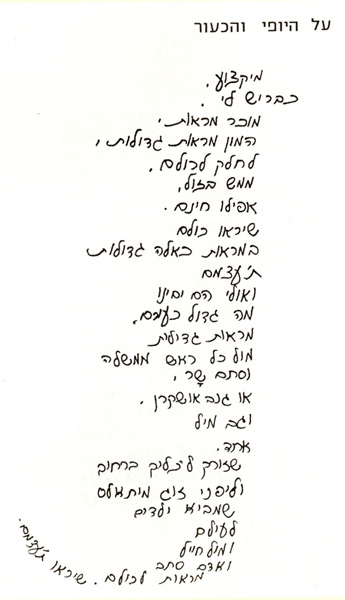 על היופי והכעור
מיקצוע.
כבריש לי.
מוכר מראות,
המון מראות גדולות,
לחלק לכולם,
ממש בזול,
אפילו חינם.
שיראו כולם
במראות כאלה גדולות
ת׳עצמם
ואולי הם יבינו
מה גדול כעמם.
מראות גדולות
מול כל ראש ממשלה
וסתם שָר,
או גנב או שקרן.
וגם מול
אחד.
שזורק לכלוך ברחוב
ולפני זוג
שמביא ילדים
לעולם
ומול חייל
ואדם סתם
מראות לכולם. שיראו ת׳עצמם.